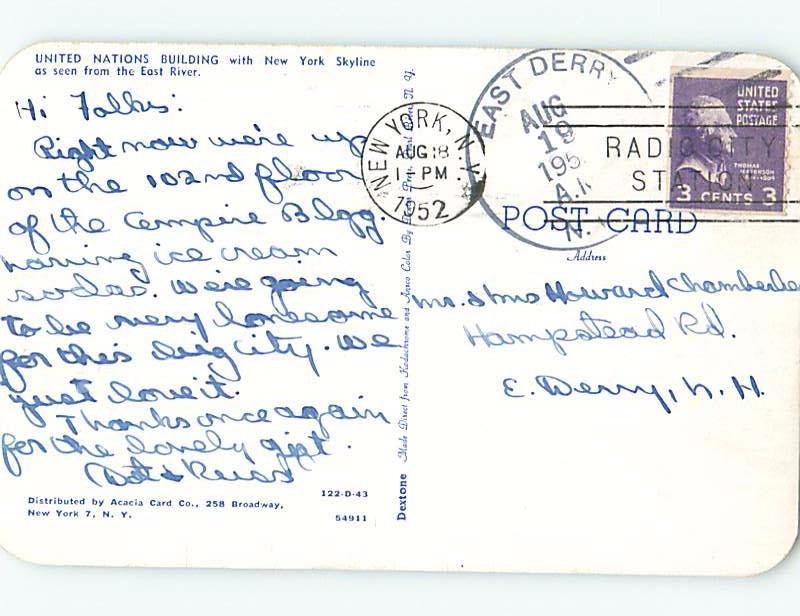 UNITED NATIONS BUILDING with New York Skyline
as seen from the East River.
Hi Folks:
Right now we're up
on the 102nd floor
of the Empire Bldg.
having ice cream
sodas. We're going
to be very lonesome
for this big city. We
just love it.
Thanks once again
for the lovely gift.
Dot & Russ
Distributed by Acacia Card Co., 258 Broadway,
New York 7, N. Y.
122-D-43
54911
Dextone Made Direct from Kodachrome and Ansco Color By
NEW YORK, N.Y.
AUG 18
1 - PM
1952
EAST DERRY
AUG
19
195
A.M
N.
RADIO CITY
STATION
UNITED
STATES
POSTAGE
THOMAS
JEFFERSON
3 CENTS 3
POST CARD
Address
Mr. & Mrs Howard Chamberla
Hampstead Rd.
E. Derry, N. H.